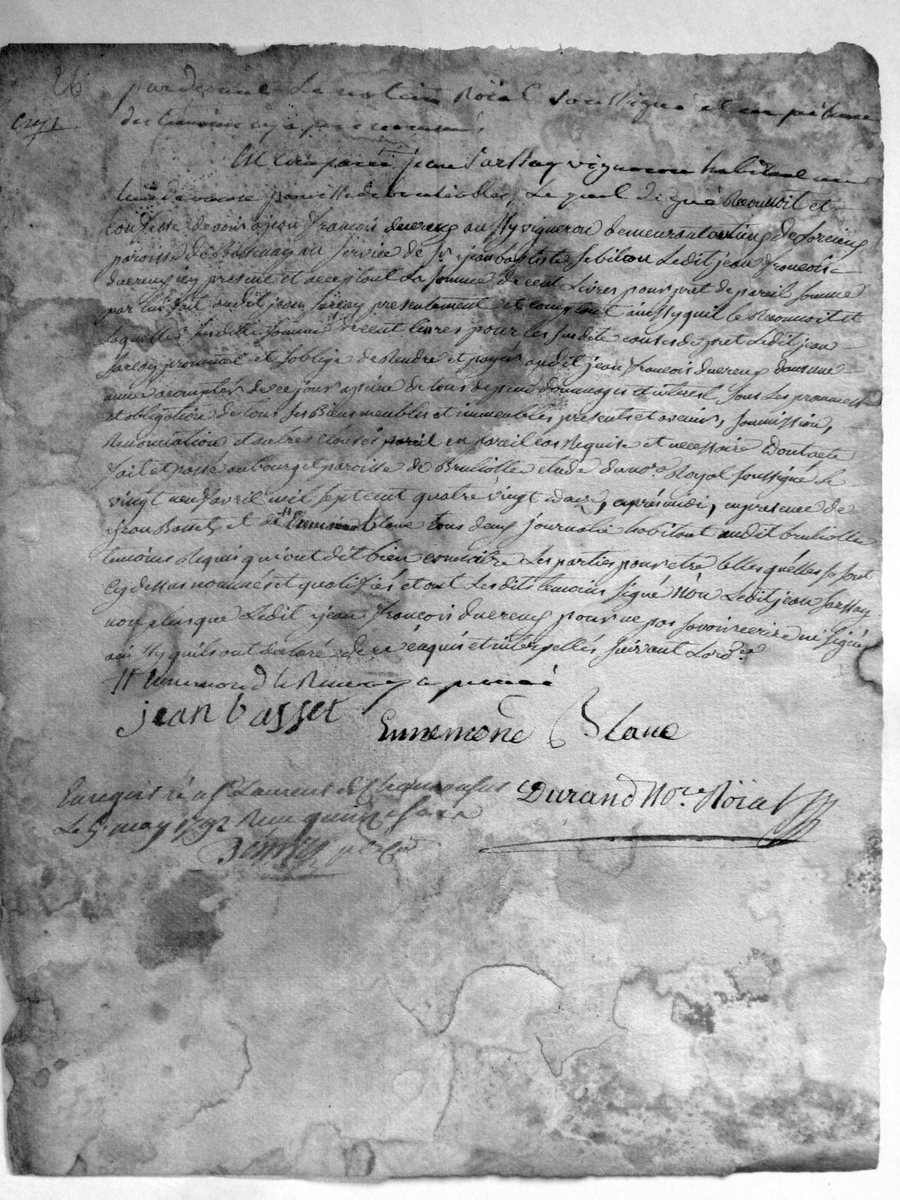 26
par devant Le notaire Roïal Soussigné et en présence
des temoins cy apres nommés,
Est Comparu jean Sarssay vigneron habitant au
paroisse de brullioles, Le quel de gré Reconnoit et
confesse devoir a jean François ducreux aussy vigneron demeurant au
paroisse de au service de Sr jean baptiste Sebilon Ledit jean François
ducreux icy present et acceptant La Somme de cent Livres pour pret de pareil Somme
par lui fait audit jean Sarssay presentement et comptant ainssy quil le Reconnoit et
Laquelle Susditte Somme de cent livres pour les susdite causes de pret Ledit jean
Sarssay promet et soblige de Rendre et payer audit jean François ducreux dans une
année a compter de ce jour a peine de tous depend dommages et interest Sous Les promesse
et obligation de tous ses Biens meubles et immeubles, presents et avenir, soumission,
Renonciation et autres clauses en pareil cas Requise et necessaire Dont acte
fait et passé au bourg et paroisse de Brulliolle etude du no.re Royal soussigné Le
vingt neuf avril mil sept cent quatre vingt douze, aprés midi, en presence de
jean Basset, et de blanc tous deux journalié habitant audit brulliolle
temoins Requis qui ont dit bien connaitre Les parties pour etre telles quelles se sont
Cy dessus nommés et qualifiés et ont Lesdits temoins signé Nón Ledit jean Sarssay
non plus que Ledit jean François ducreux pour ne pas savoir ecrire ni signé
ainssy quils ont declaré de ce enquis et interpellés suivant Lord.ce
# Ennemond le Renvoy approuvé
jean basset
Ennemond Blanc
Enregistré a St Laurent de Chamousset
Durand No.re Roïal
Le 5 may 1792 Reçu quinze sous